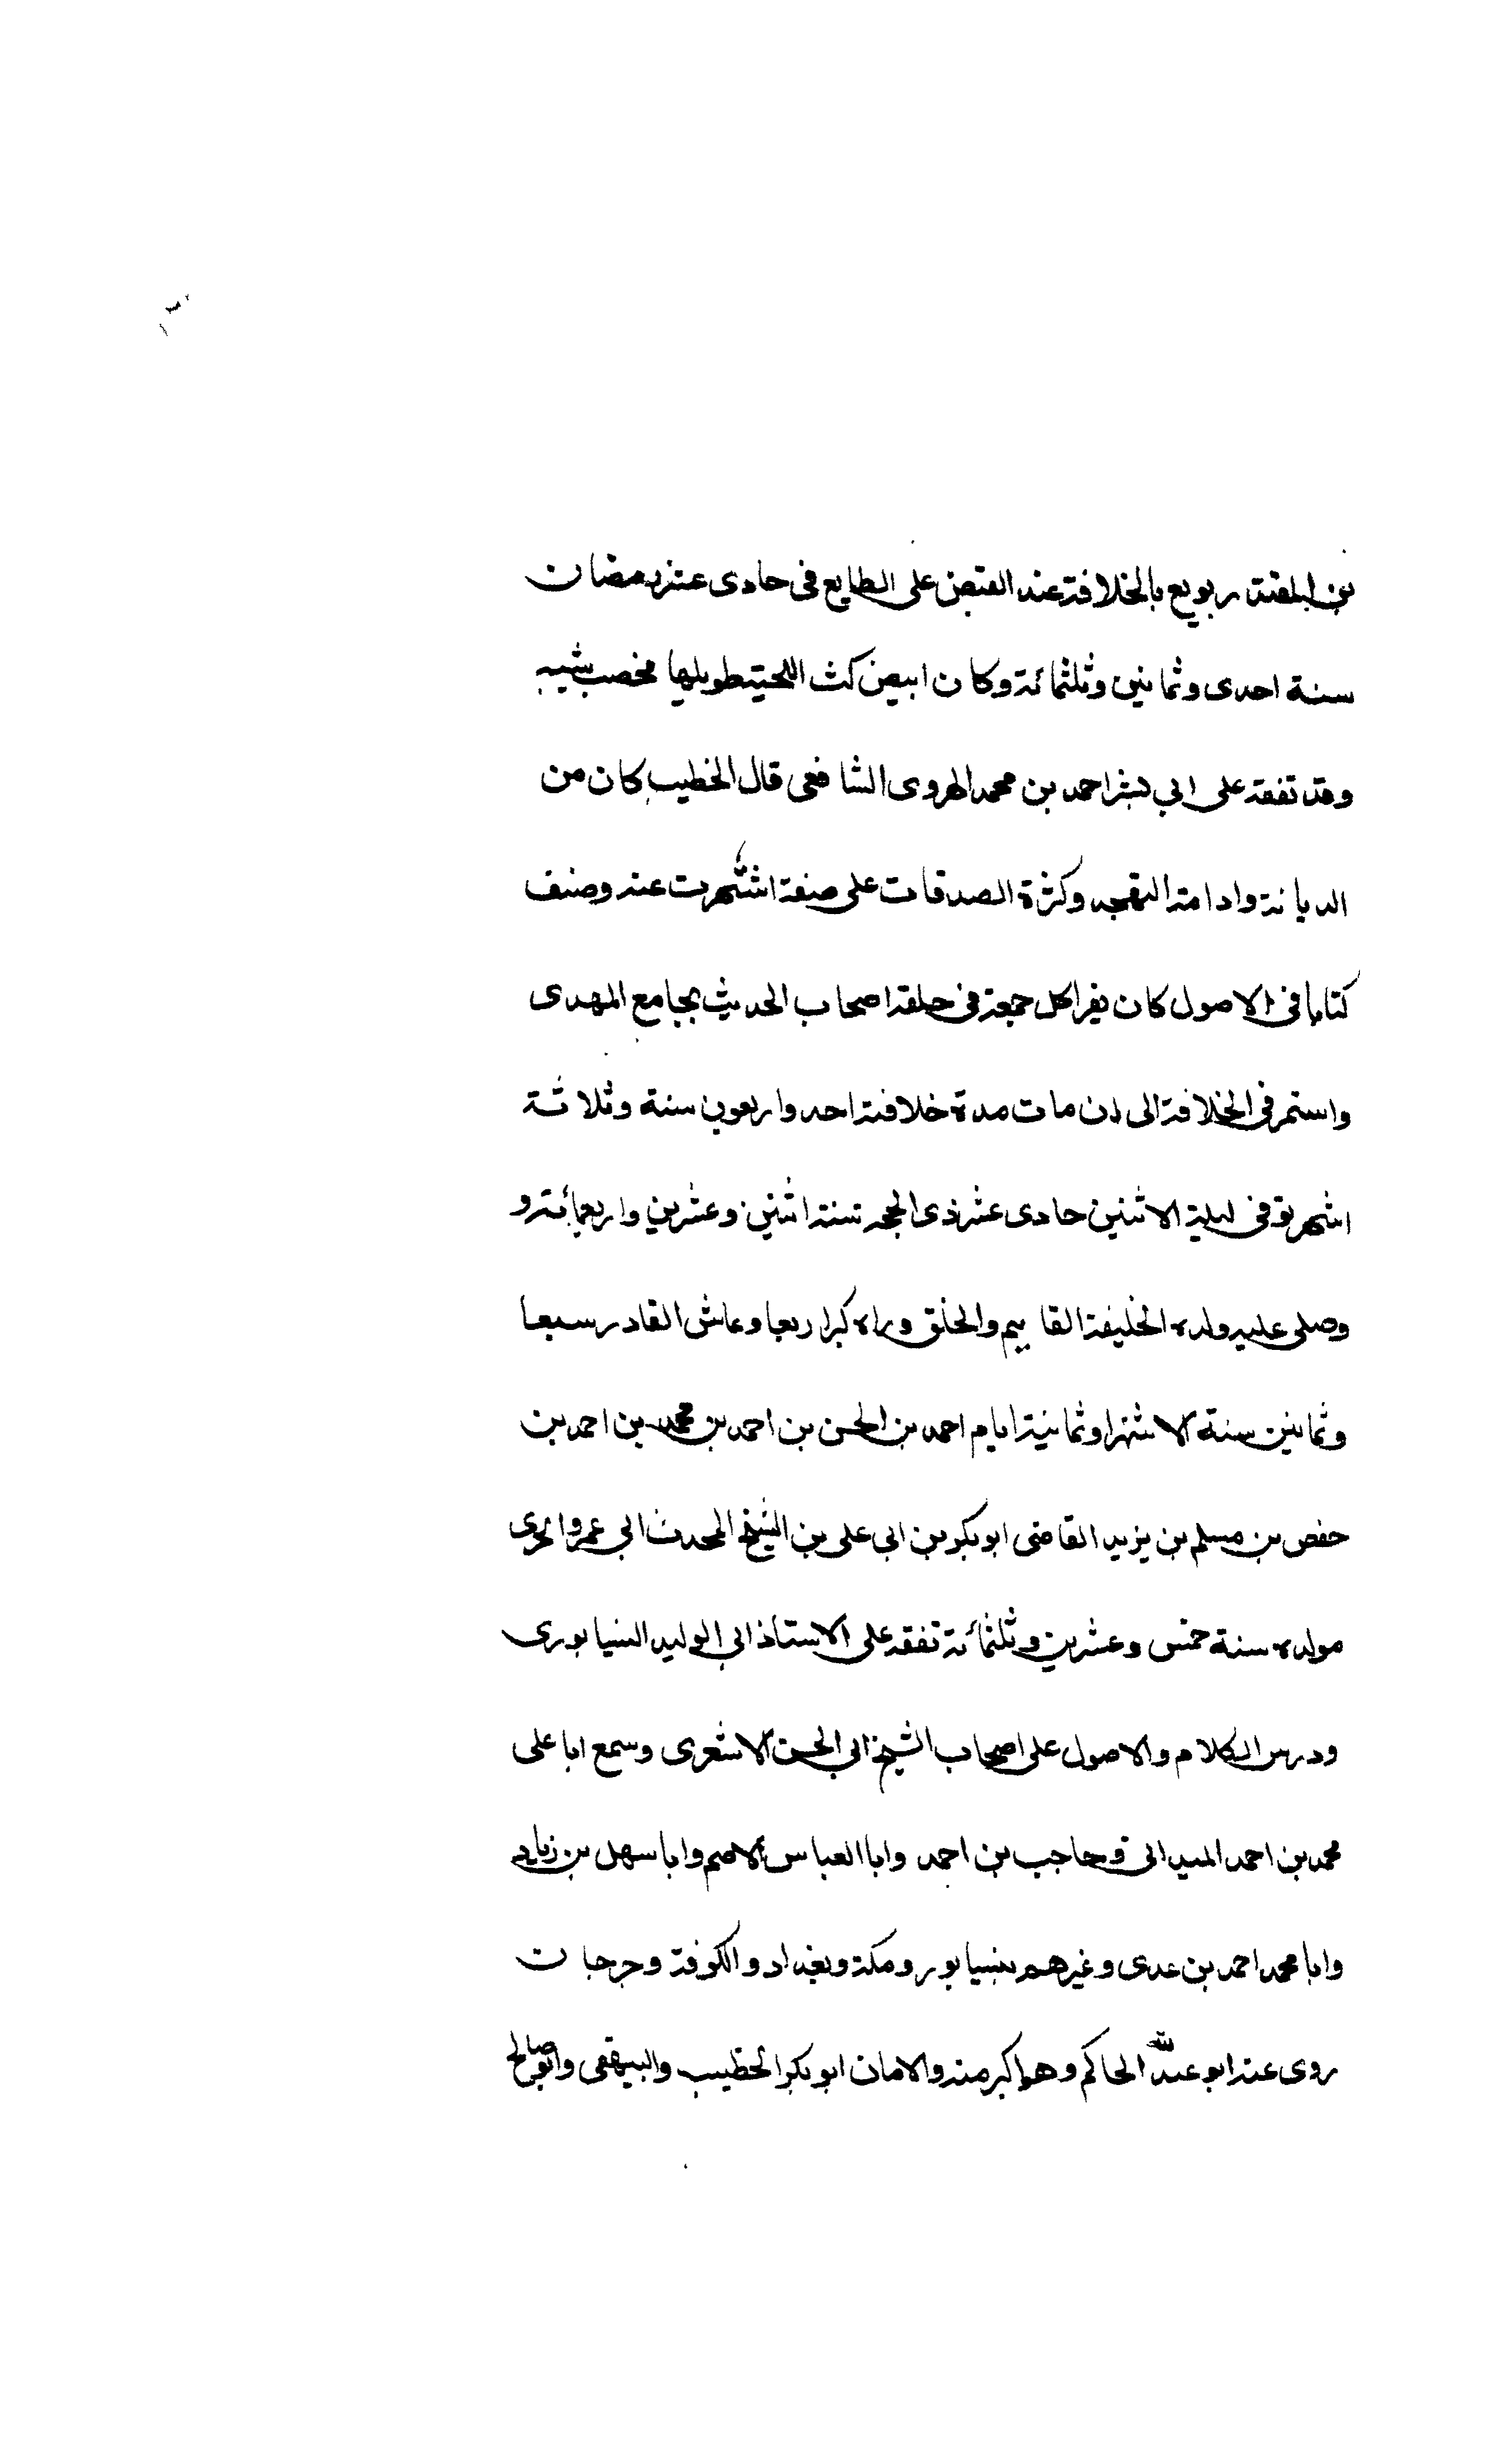 بن المقتدر بويع بالخلافة عند القبض على الطايع فى حادى عشر رمضان
سنة احدى وثمانين وثلثمائة وكان ابيض كث اللحية طويلها يخضب شيبه
وقد تفقه على ابي بشر احمد بن محمد الهروى الشافعى قال الخطيب كان من
الديانة وادامة التهجد وكثرة الصدقات على صفة اشتهرت عنه وصنف
كتابا فى الاصول كان يقرا كل جمعة فى حلقة اصحاب الحديث بجامع المهدى
واستمر فى الخلافة الى ان مات مدة خلافته احد واربعون سنة وثلاثة
اشهر توفى ليلة الاثنين حادى عشر ذى الحجه سنة اثنين وعشرين واربعمائة و
وصلى عليه ولده الخليفة القايم والخلق وراه كبر اربعا وعاش القادر سبعا
وثمانين سنة الا شهرا وثمانية ايام احمد بن الحسن بن احمد بن محمد بن احمد بن
حفص بن مسلم بن يزيد القاضى ابوبكر بن ابى على بن الشيخ المحدث ابي عمرو الحرى
مولده سنة خمس وعشرين وثلثمائة تفقه على الاستاذ ابي الوليد النيسابورى
ودرس الكلام والاصول على اصحاب الشيخ ابي الحسن الاشعرى وسمع ابا على
محمد بن احمد الميدانى وحاجب بن احمد وابا العباس الاصم وابا سهل بن زياد
وابا محمد احمد بن عدى وغيرهم بنيسابور ومكة وبغداد والكوفة وجرجان
روى عنه ابو عبد الله الحاكم وهو اكبر منه والامامان ابوبكر الخطيب والبيهقى وابو صالح